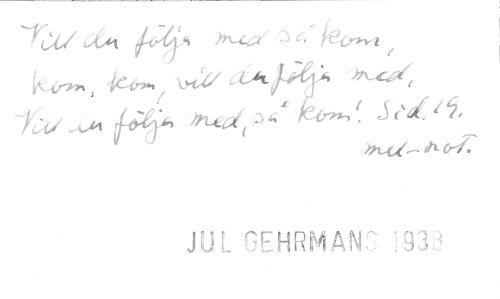 Vill du följa med så kom,
kom, kom, vill du följa med,
Vill du följa med, så kom! Sid. 19.
mel-not.
JUL GEHRMANS 1938